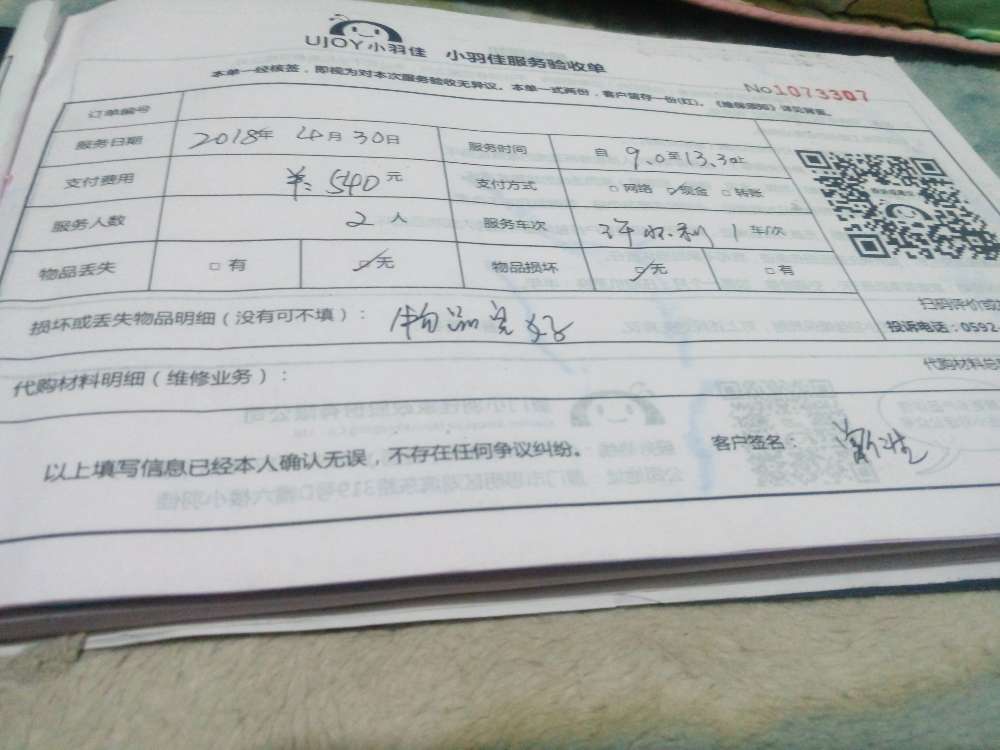 UJOY小羽佳 小羽佳服务验收单
本单一经核签，即视为对本次服务验收无异议。本单一式两份，客户留存一份(红)。《维保须知》详见背面。
No1073307
订单编号
服务日期 2018年 4月 30日 服务时间 自 9.0至13.30止
支付费用 ￥:540元 支付方式 □网络 ☑现金 □转账
服务人数 2人 服务车次 1车/次
物品丢失 □有 ☑无 物品损坏 ☑无 □有
扫码评价或
损坏或丢失物品明细（没有可不填）： 物品完好
投诉电话：0592-
代购材料明细（维修业务）：
代购材料总
以上填写信息已经本人确认无误，不存在任何争议纠纷。 客户签名：